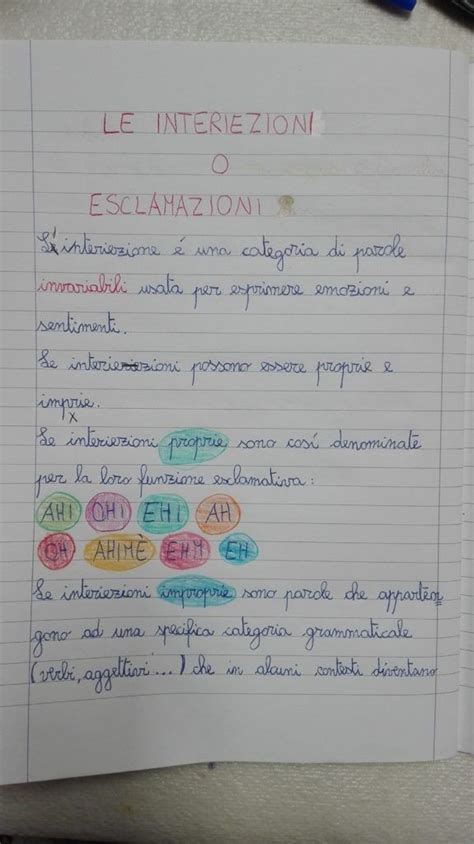 LE INTERIEZIONI
O
ESCLAMAZIONI
L'interiezione é una categoria di parole
invariabili usata per esprimere emozioni e
sentimenti.
Le interiezioni possono essere proprie e
imprie.
Le interiezioni proprie sono cosí denominate
per la loro funzione esclamativa:
AHI OHI EHI AH
OH AHIMÈ EHM EH
Le interiezioni improprie sono parole che apparten
gono ad una specifica categoria grammaticale
(verbi, aggettivi...) che in alcuni contesti diventano